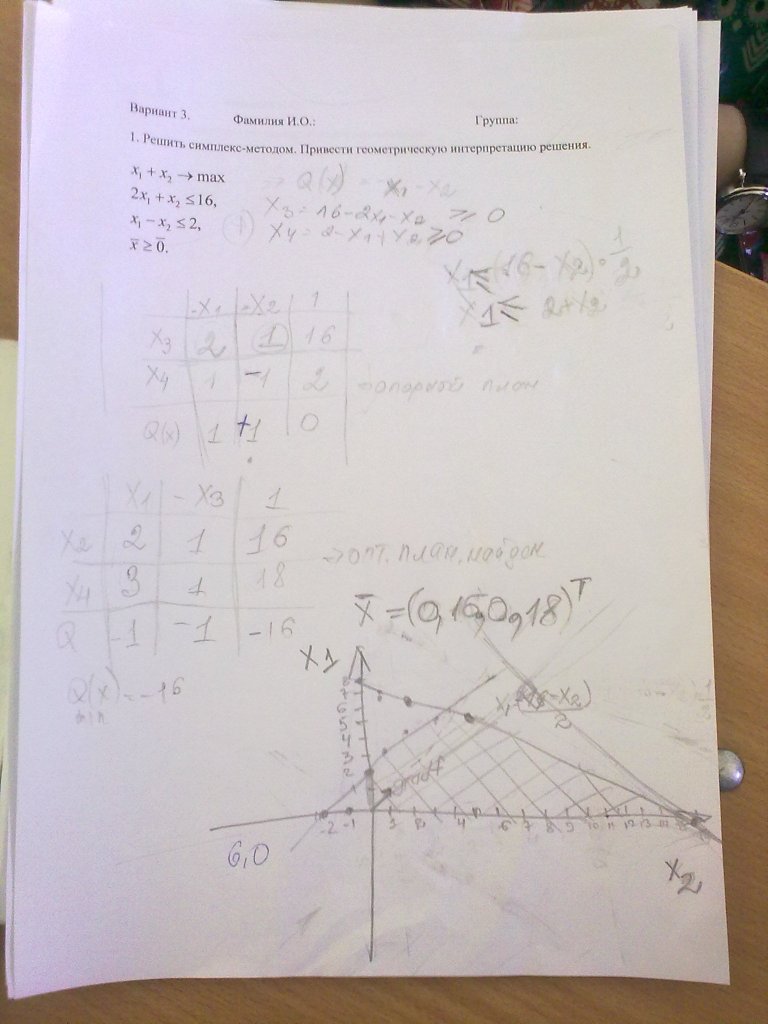 Вариант 3. Фамилия И.О.: Группа:
1. Решить симплекс-методом. Привести геометрическую интерпретацию решения.
x₁ + x₂ → max
2x₁ + x₂ ≤ 16,
x₁ − x₂ ≤ 2,
x̄ ≥ 0̄.
→ Q(x) = - x₁ - x₂
x₃ = 16 - 2x₁ - x₂ ≥ 0
x₄ = 2 - x₁ + x₂ ≥ 0
x₁ ≤ (16 - x₂) · 1/2
x₁ ≤ 2 + x₂
-x₁ -x₂ 1
x₃ 2 1 16
x₄ 1 -1 2 → опорный план
Q(x) 1 +1 0
x₁ - x₃ 1
x₂ 2 1 16
x₄ 3 1 18
Q -1 -1 -16
→ опт. план найден
x̄ = (0, 16, 0, 18)ᵀ
Q(x) = -16
min
x1
8
7
6
5
4
3
2
1
gradf
-2 -1
4 6 7 8 9 10 11 12 13
x₂
6,0